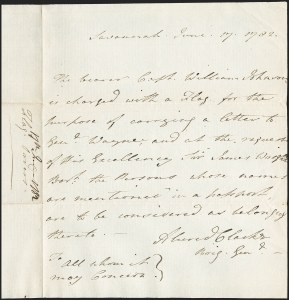 Savannah June 17. 1782.
The bearer Capt. William Johnson
is charged with a Flag for the
purpose of carrying a letter to
Genl. Wayne; and at the request
of His Excellency Sir James Wright
Bart. the Persons whose names
are mentioned in a passport,
are to be considered as belonging
thereto.
Alured Clarke
Brig. Genl.
To all whom it
may Concern